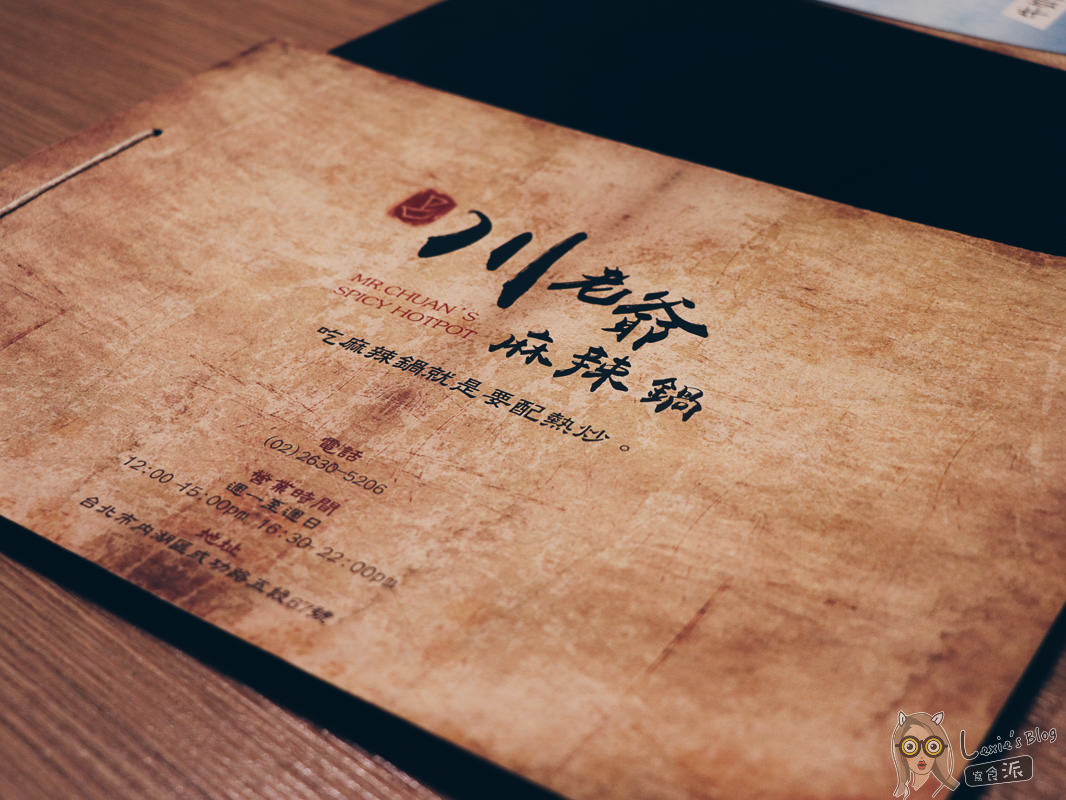 川老爺
麻辣鍋
MR.CHUAN'S
SPICY HOTPOT
吃麻辣鍋就是要配熱炒。
電話
(02)2630-5206
營業時間
週一至週日
12:00-15:00pm 16:30-22:00pm
地址
台北市內湖區成功路五段67號
Lexie's Blog
寫食派